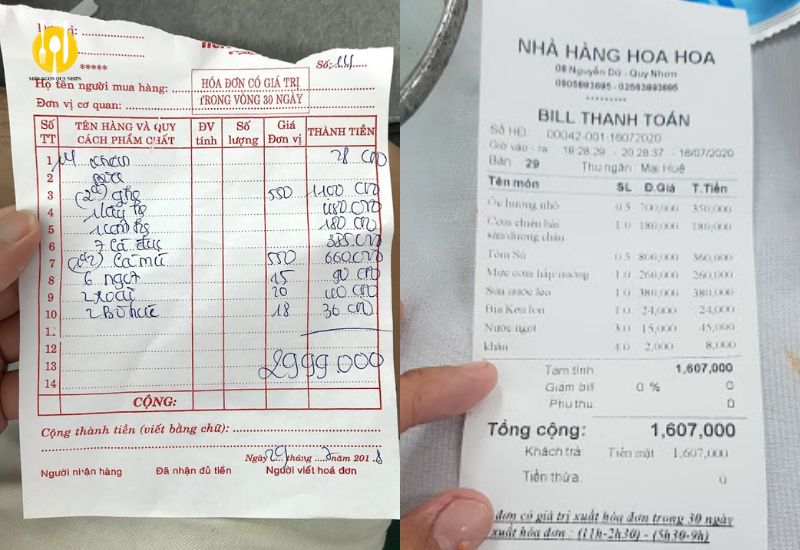 MÓN NGON QUY NHƠN
*****
Số: 14
Họ tên người mua hàng:
HÓA ĐƠN CÓ GIÁ TRỊ
TRONG VÒNG 30 NGÀY
Đơn vị cơ quan:
Số TT TÊN HÀNG VÀ QUY CÁCH PHẨM CHẤT ĐV tính Số lượng Giá Đơn vị THÀNH TIỀN
1 14 khăn 28 000
2
3 (2) ghẹ 550 1100 000
4 480 000
5 180 000
6 7 Cá đục 385 000
7 Cá mú 550 660 000
8 6 ngọt 15 90 000
9 2 20 40 000
10 2 18 36 000
11
12
13 2999.000
14
CỘNG:
Cộng thành tiền (viết bằng chữ):
Ngày 29 tháng 7 năm 201 8
Người nhận hàng Đã nhận đủ tiền Người viết hoá đơn
NHÀ HÀNG HOA HOA
08 Nguyễn Dữ - Quy Nhơn
*********
BILL THANH TOÁN
Số HĐ: 00042-001-16072020
Giờ vào - ra 18:28:29 - 20:28:37 - 16/07/2020
Bàn 29 Thu ngân: Mai Huê
Tên món SL Đ.Giá T.Tiền
Ốc hương nhỏ 0.5 700,000 350,000
Cơm chiên hải sản/dương châu 1.0 180,000 180,000
Tôm Sú 0.5 360,000
Mực cơm hấp/nướng 1.0 260,000 260,000
Sứa nước lèo 1.0 380,000 380,000
Bia Ken lon 1.0 24,000 24,000
Nước ngọt 3.0 15,000 45,000
khăn 4.0 2,000 8,000
Tạm tính 1,607,000
Giảm bill 0 % 0
Phụ thu 0
Tổng cộng: 1,607,000
Khách trả Tiền mặt 1,607,000
Tiền thừa: 0
đơn có giá trị xuất hóa đơn trong 30 ngày
xuất hóa đơn : (11h-2h30) - (5h30-9h)